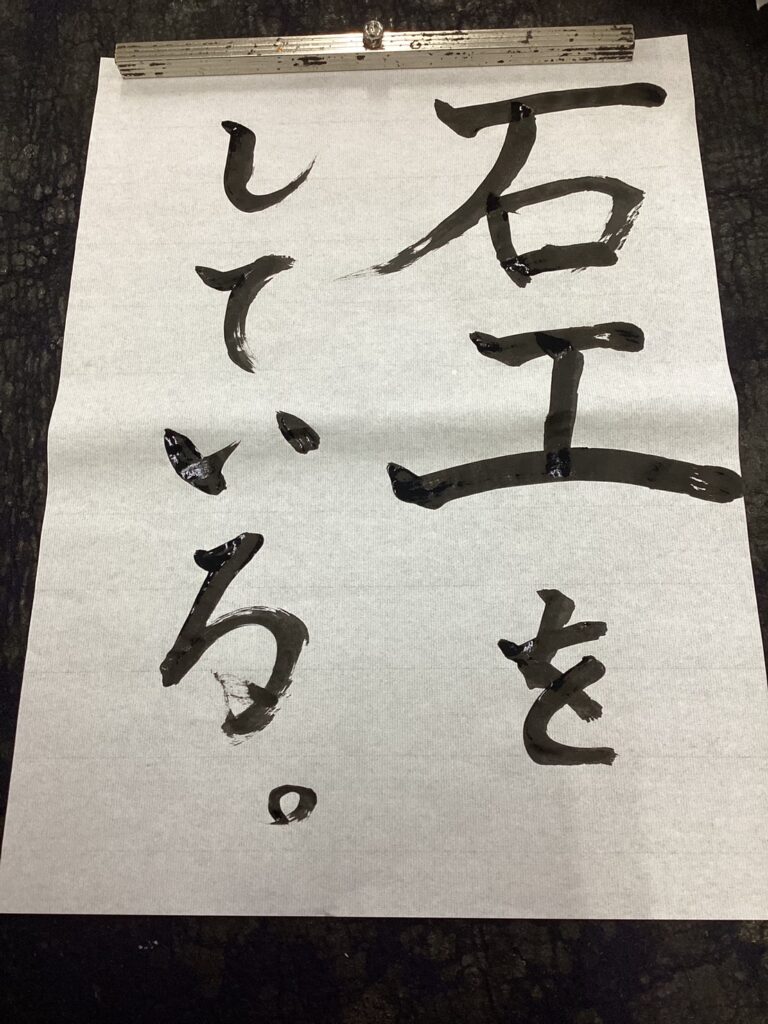 石工を
している。